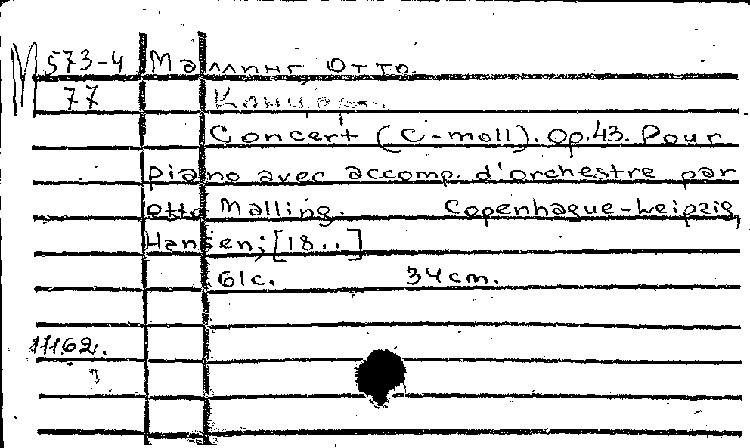 М 573-4 Маллинг Отто.
77 Концерт.
Concert (C-moll). Op.43. Pour
piano avec accomp. d'orchestre par
Otto Malling. Copenhague-Leipzig,
Hansen; [18..]
61c. 34cm.
11162.